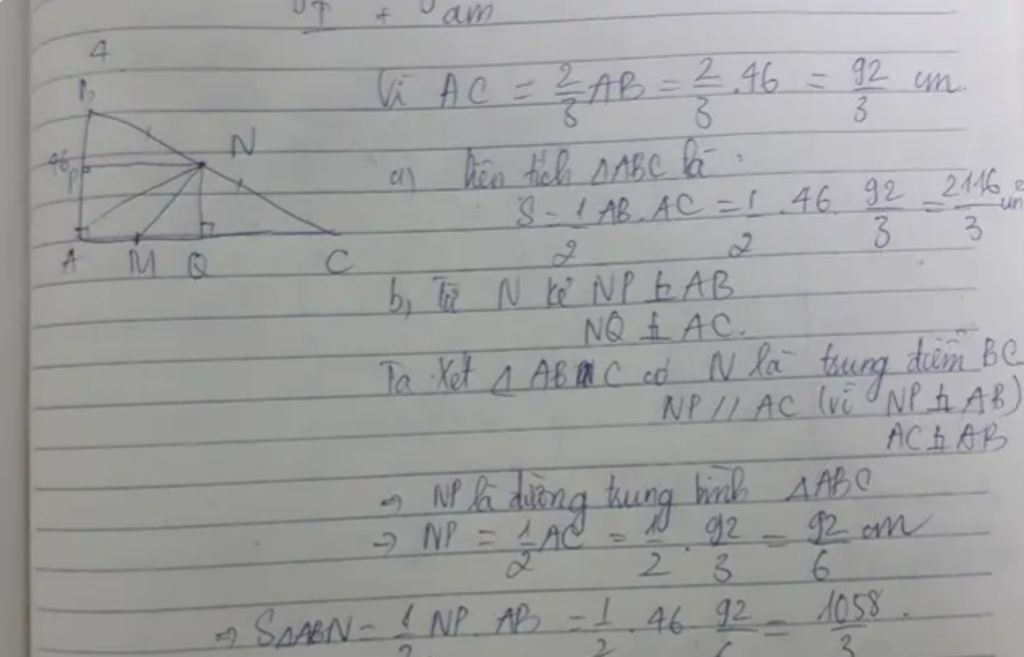 + am
4
Vì AC = 2/3 AB = 2/3 . 46 = 92/3 cm.
B
46
P
N
A M Q C
a) Diện tích ΔABC là :
S = 1/2 AB . AC = 1/2 . 46 . 92/3 = 2116/3 cm²
b, Từ N kẻ NP ⊥ AB
NQ ⊥ AC.
Ta xét Δ ABC có N là trung điểm BC
NP // AC (vì NP ⊥ AB)
AC ⊥ AB
⇒ NP là đường trung bình ΔABC
⇒ NP = 1/2 AC = 1/2 . 92/3 = 92/6 cm
⇒ SΔABN = 1/2 NP . AB = 1/2 . 46 . 92/6 = 1058/3 .